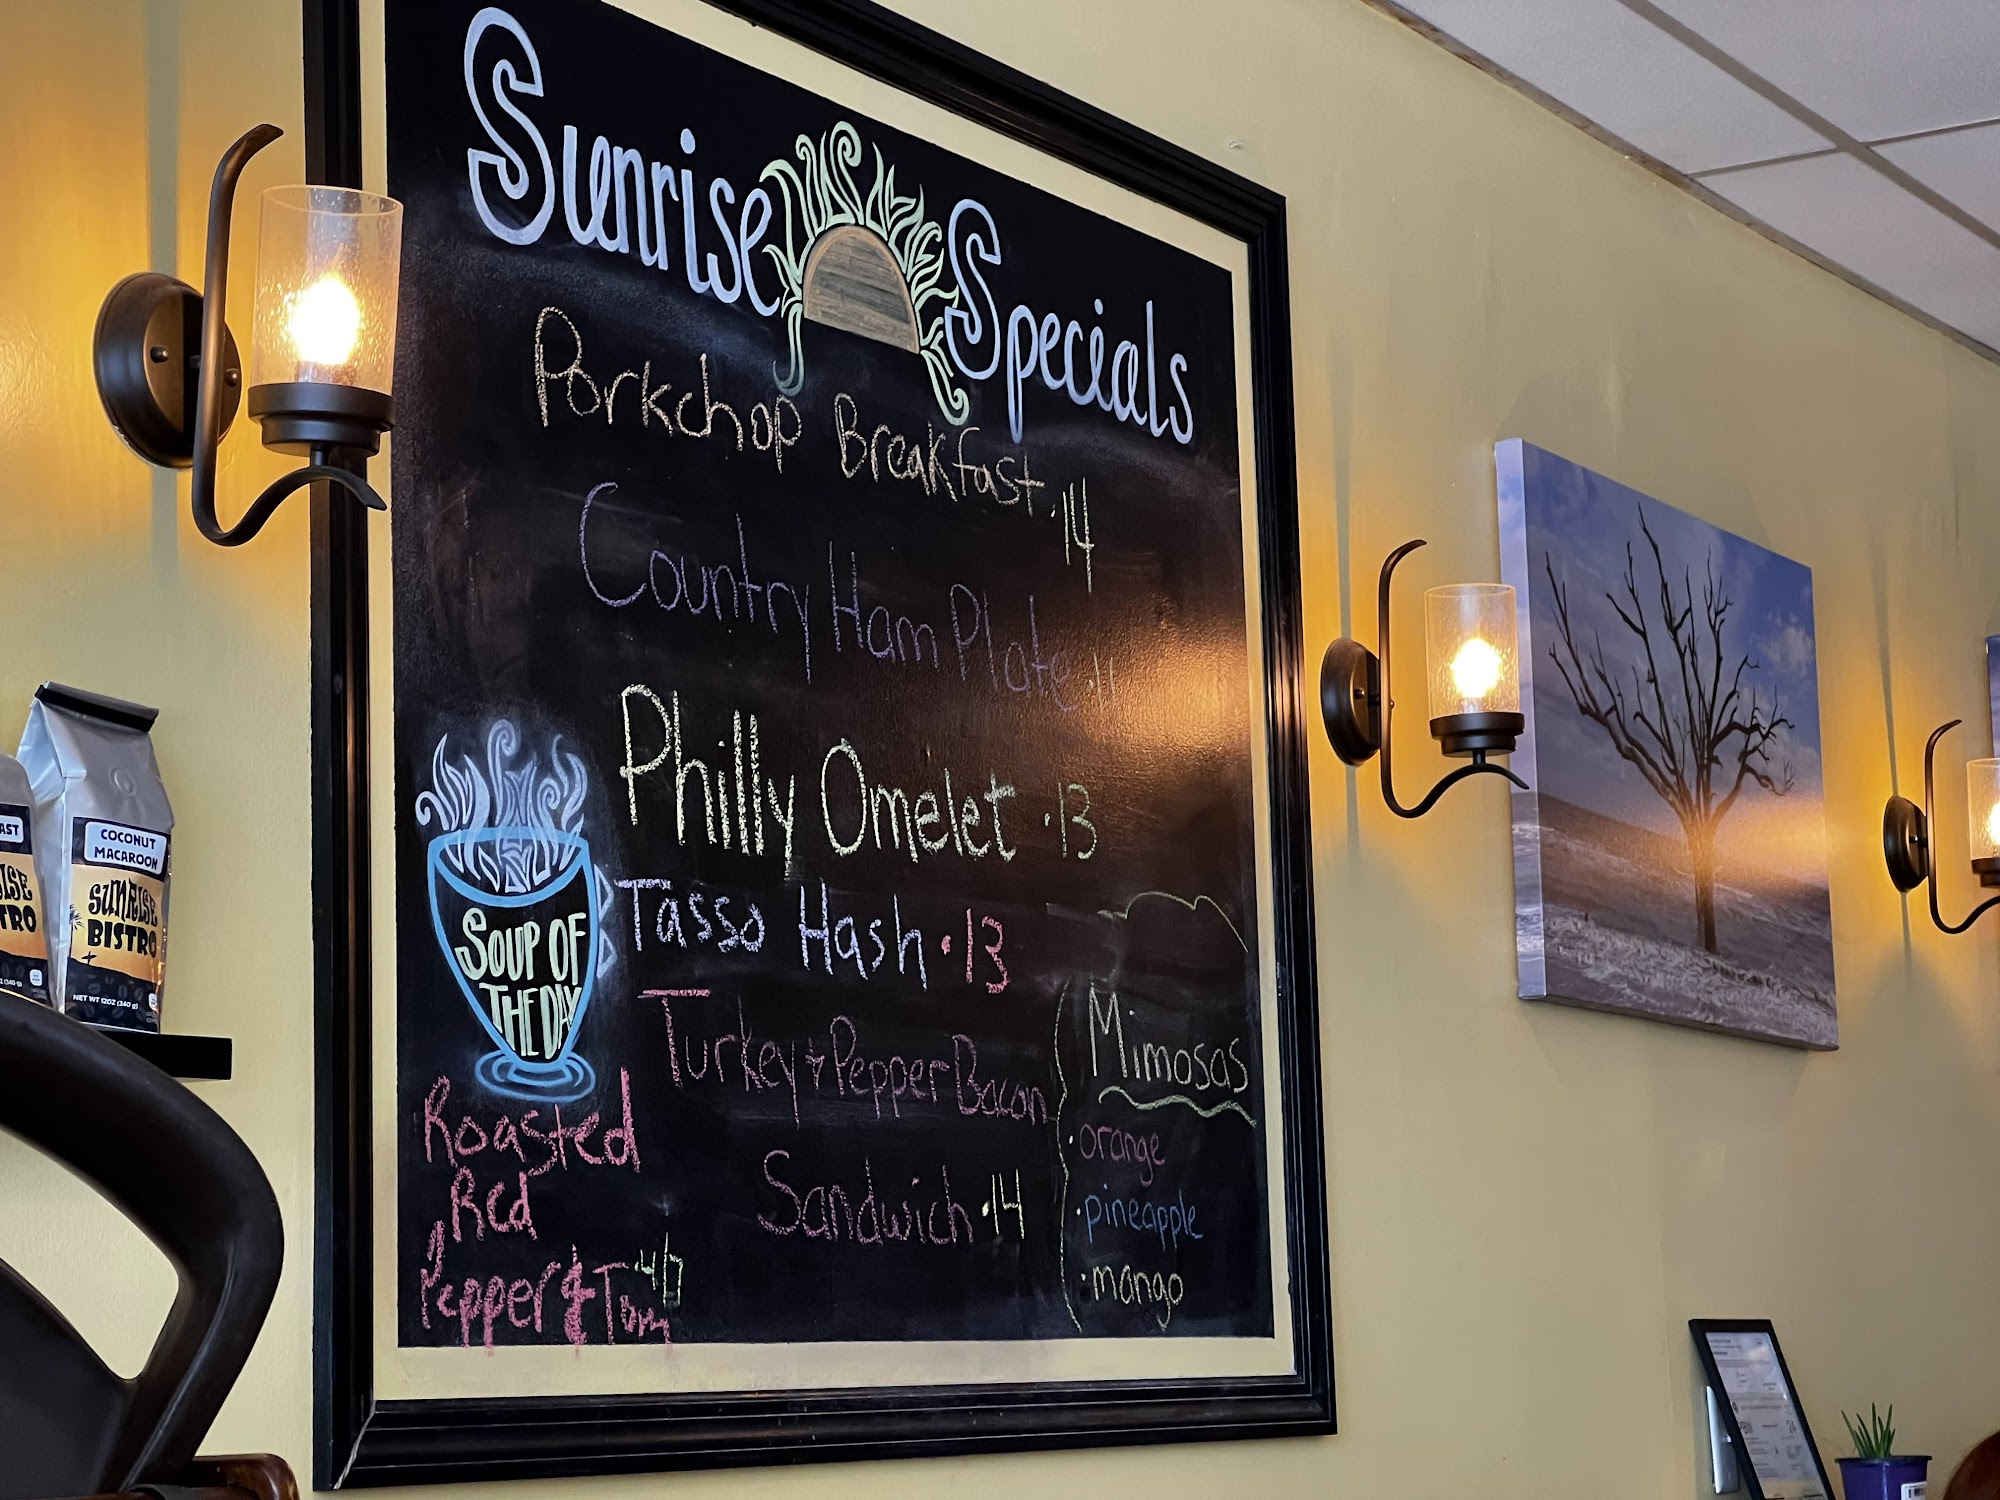 Sunrise Specials
Porkchop Breakfast .14
Country Ham Plate .11
Philly Omelet .13
Tasso Hash .13
Turkey + Pepper Bacon
Sandwich .14
SOUP OF
THE DAY
Roasted
Red
Pepper & Tom
Mimosas
• orange
• pineapple
• mango
COCONUT
MACAROON
SUNRISE
BISTRO
NET WT 12OZ (340 g)
AST
ISE
TRO